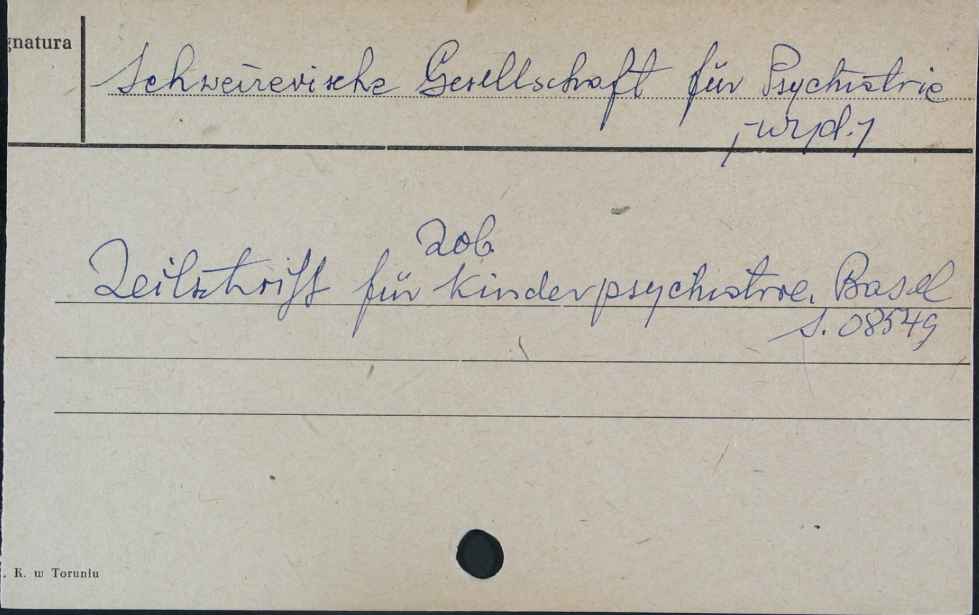 gnatura
Schweizerische Gesellschaft für Psychiatrie
/-wyd./
zob
Zeitschrift für Kinderpsychiatrie. Basel
S. 08549
. K. w Toruniu